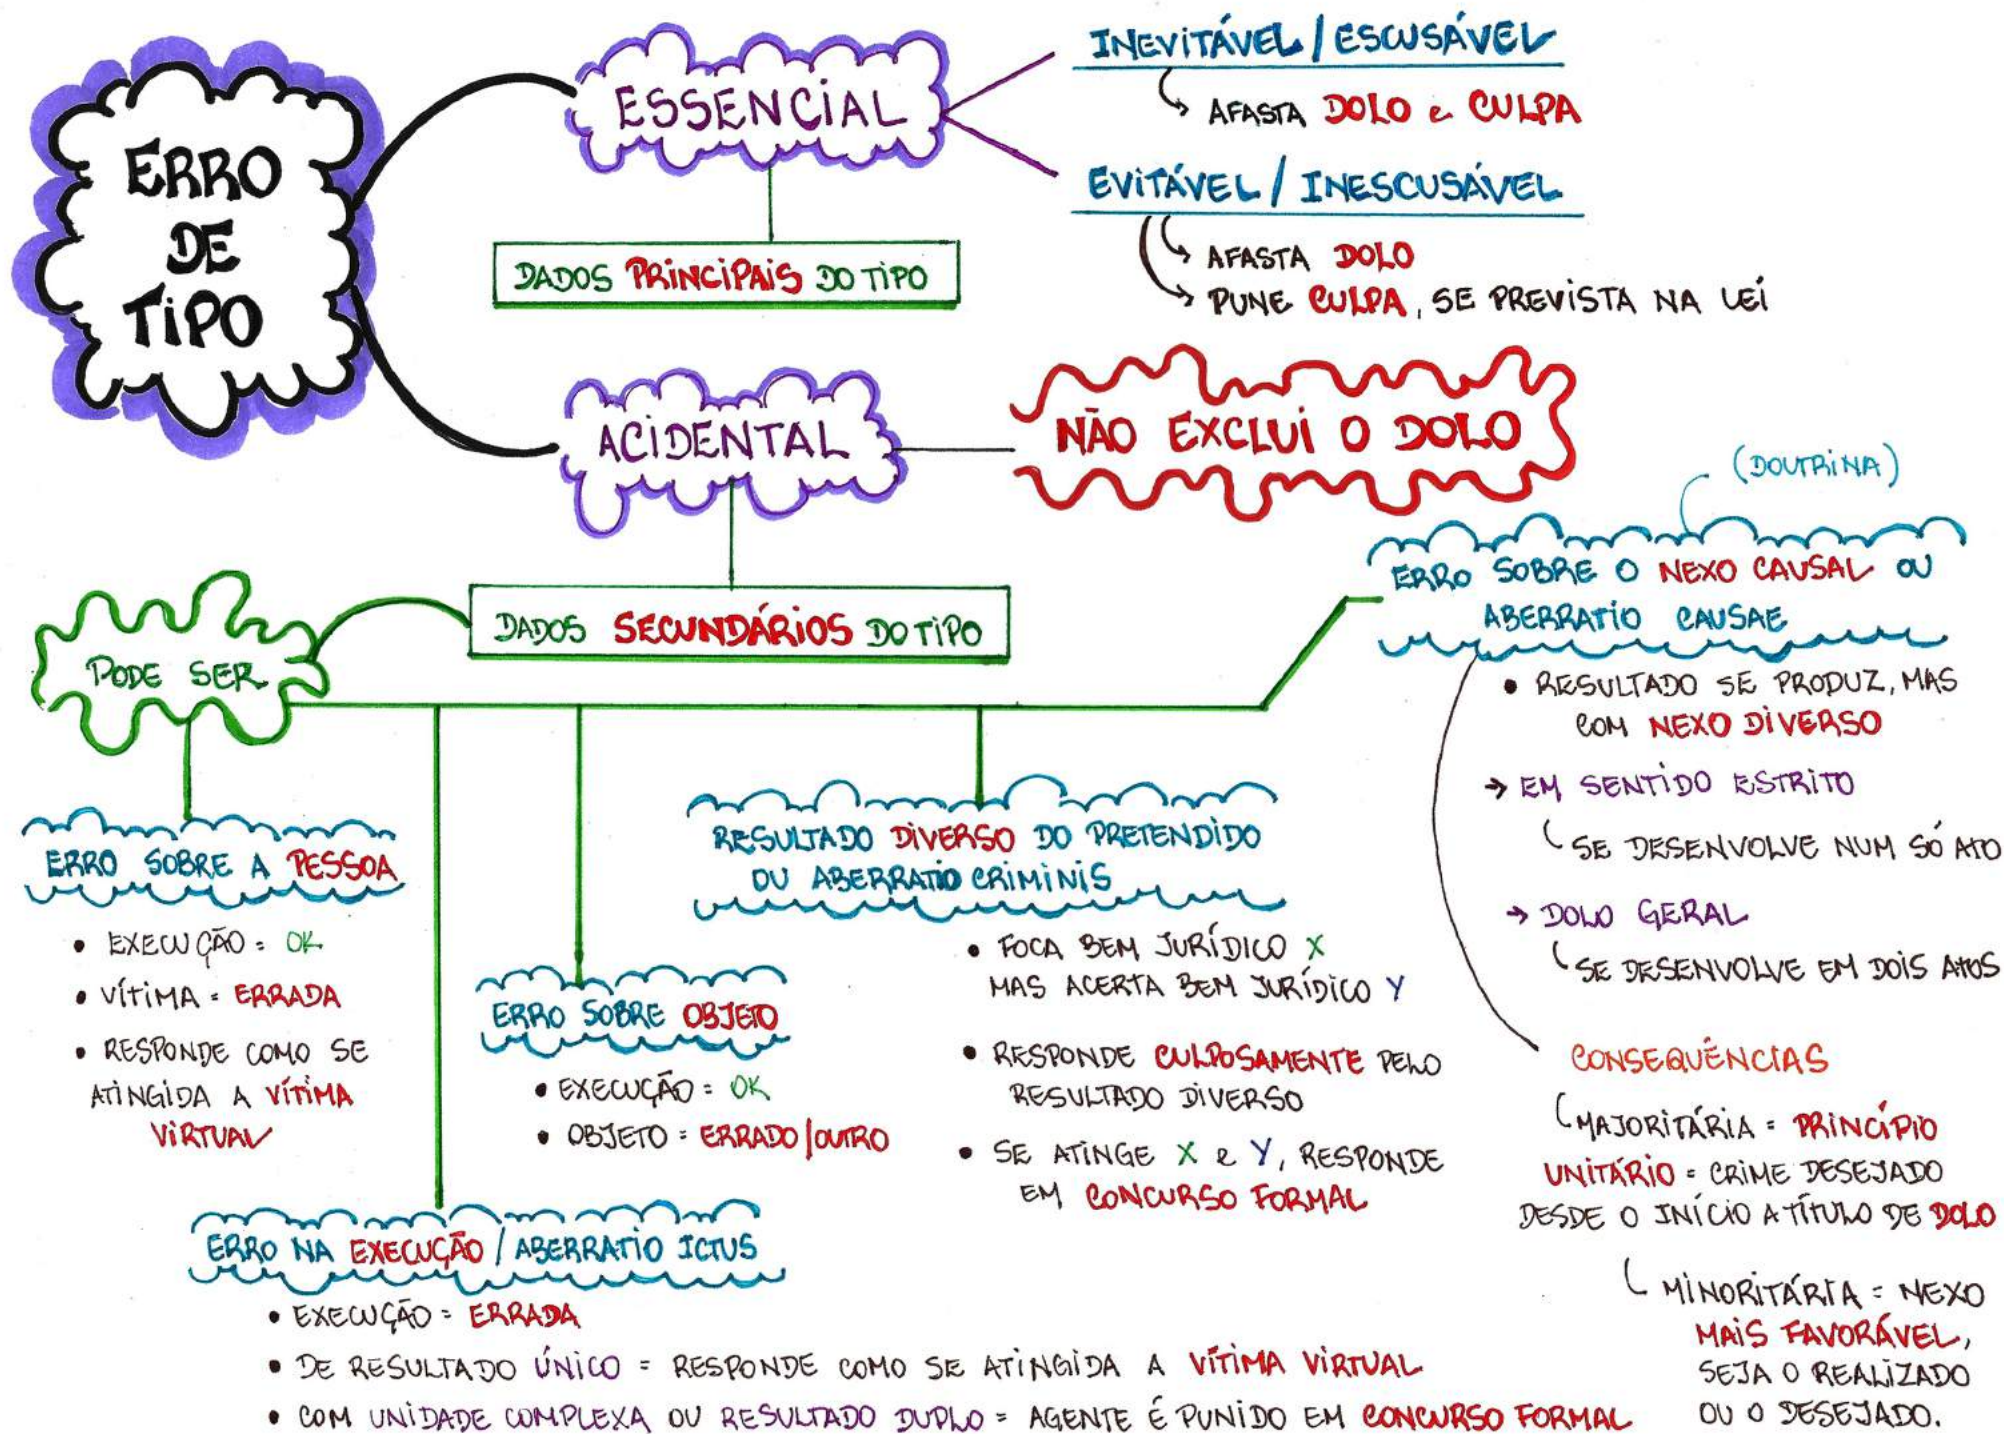 ERRO
DE
TIPO
ESSENCIAL
INEVITÁVEL / ESCUSÁVEL
AFASTA DOLO e CULPA
EVITÁVEL / INESCUSÁVEL
AFASTA DOLO
PUNE CULPA, SE PREVISTA NA LEI
DADOS PRINCIPAIS DO TIPO
ACIDENTAL
NÃO EXCLUI O DOLO
DADOS SECUNDÁRIOS DO TIPO
PODE SER
ERRO SOBRE A PESSOA
• EXECUÇÃO = OK
• VÍTIMA = ERRADA
• RESPONDE COMO SE
ATINGIDA A VÍTIMA
VIRTUAL
ERRO NA EXECUÇÃO / ABERRATIO ICTUS
• EXECUÇÃO = ERRADA
• DE RESULTADO ÚNICO = RESPONDE COMO SE ATINGIDA A VÍTIMA VIRTUAL
• COM UNIDADE COMPLEXA OU RESULTADO DUPLO = AGENTE É PUNIDO EM CONCURSO FORMAL
ERRO SOBRE OBJETO
• EXECUÇÃO = OK
• OBJETO = ERRADO/OUTRO
RESULTADO DIVERSO DO PRETENDIDO
OU ABERRATIO CRIMINIS
• FOCA BEM JURÍDICO X
MAS ACERTA BEM JURÍDICO Y
• RESPONDE CULPOSAMENTE PELO
RESULTADO DIVERSO
• SE ATINGE X e Y, RESPONDE
EM CONCURSO FORMAL
(DOUTRINA)
ERRO SOBRE O NEXO CAUSAL OU
ABERRATIO CAUSAE
• RESULTADO SE PRODUZ, MAS
COM NEXO DIVERSO
→ EM SENTIDO ESTRITO
SE DESENVOLVE NUM SÓ ATO
→ DOLO GERAL
SE DESENVOLVE EM DOIS ATOS
CONSEQUÊNCIAS
MAJORITÁRIA = PRINCÍPIO
UNITÁRIO = CRIME DESEJADO
DESDE O INÍCIO A TÍTULO DE DOLO
MINORITÁRIA = NEXO
MAIS FAVORÁVEL,
SEJA O REALIZADO
OU O DESEJADO.